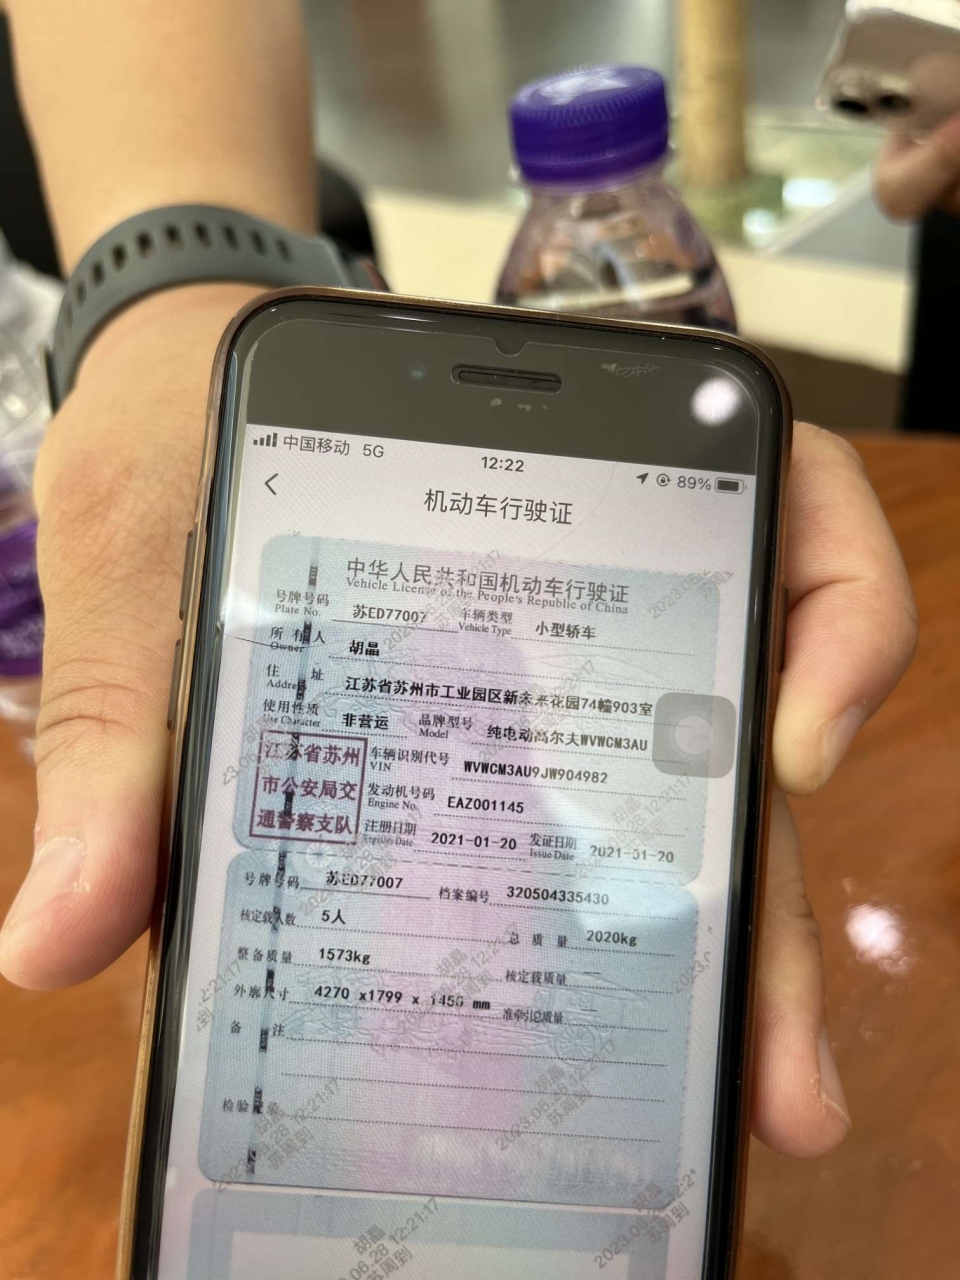 中国移动 5G 12:22 89%
机动车行驶证
中华人民共和国机动车行驶证
Vehicle License of the People's Republic of China
号牌号码 苏ED77007 车辆类型 小型轿车
Plate No. Vehicle Type
所有人 胡晶
Owner
住址 江苏省苏州市工业园区新未来花园74幢903室
Address
使用性质 非营运 品牌型号 纯电动高尔夫WVWCM3AU
Use Character Model
江苏省苏州
市公安局交
通警察支队
车辆识别代号 WVWCM3AU9JW904982
VIN
发动机号码 EAZ001145
Engine No.
注册日期 2021-01-20 发证日期 2021-01-20
Register Date Issue Date
号牌号码 苏ED77007 档案编号 320504335430
核定载人数 5人 总质量 2020kg
整备质量 1573kg 核定载质量 —
外廓尺寸 4270 x1799 x 1450 mm 准牵引总质量 —
备注
检验记录
胡晶
2023.06.28 12:21:17
苏周到